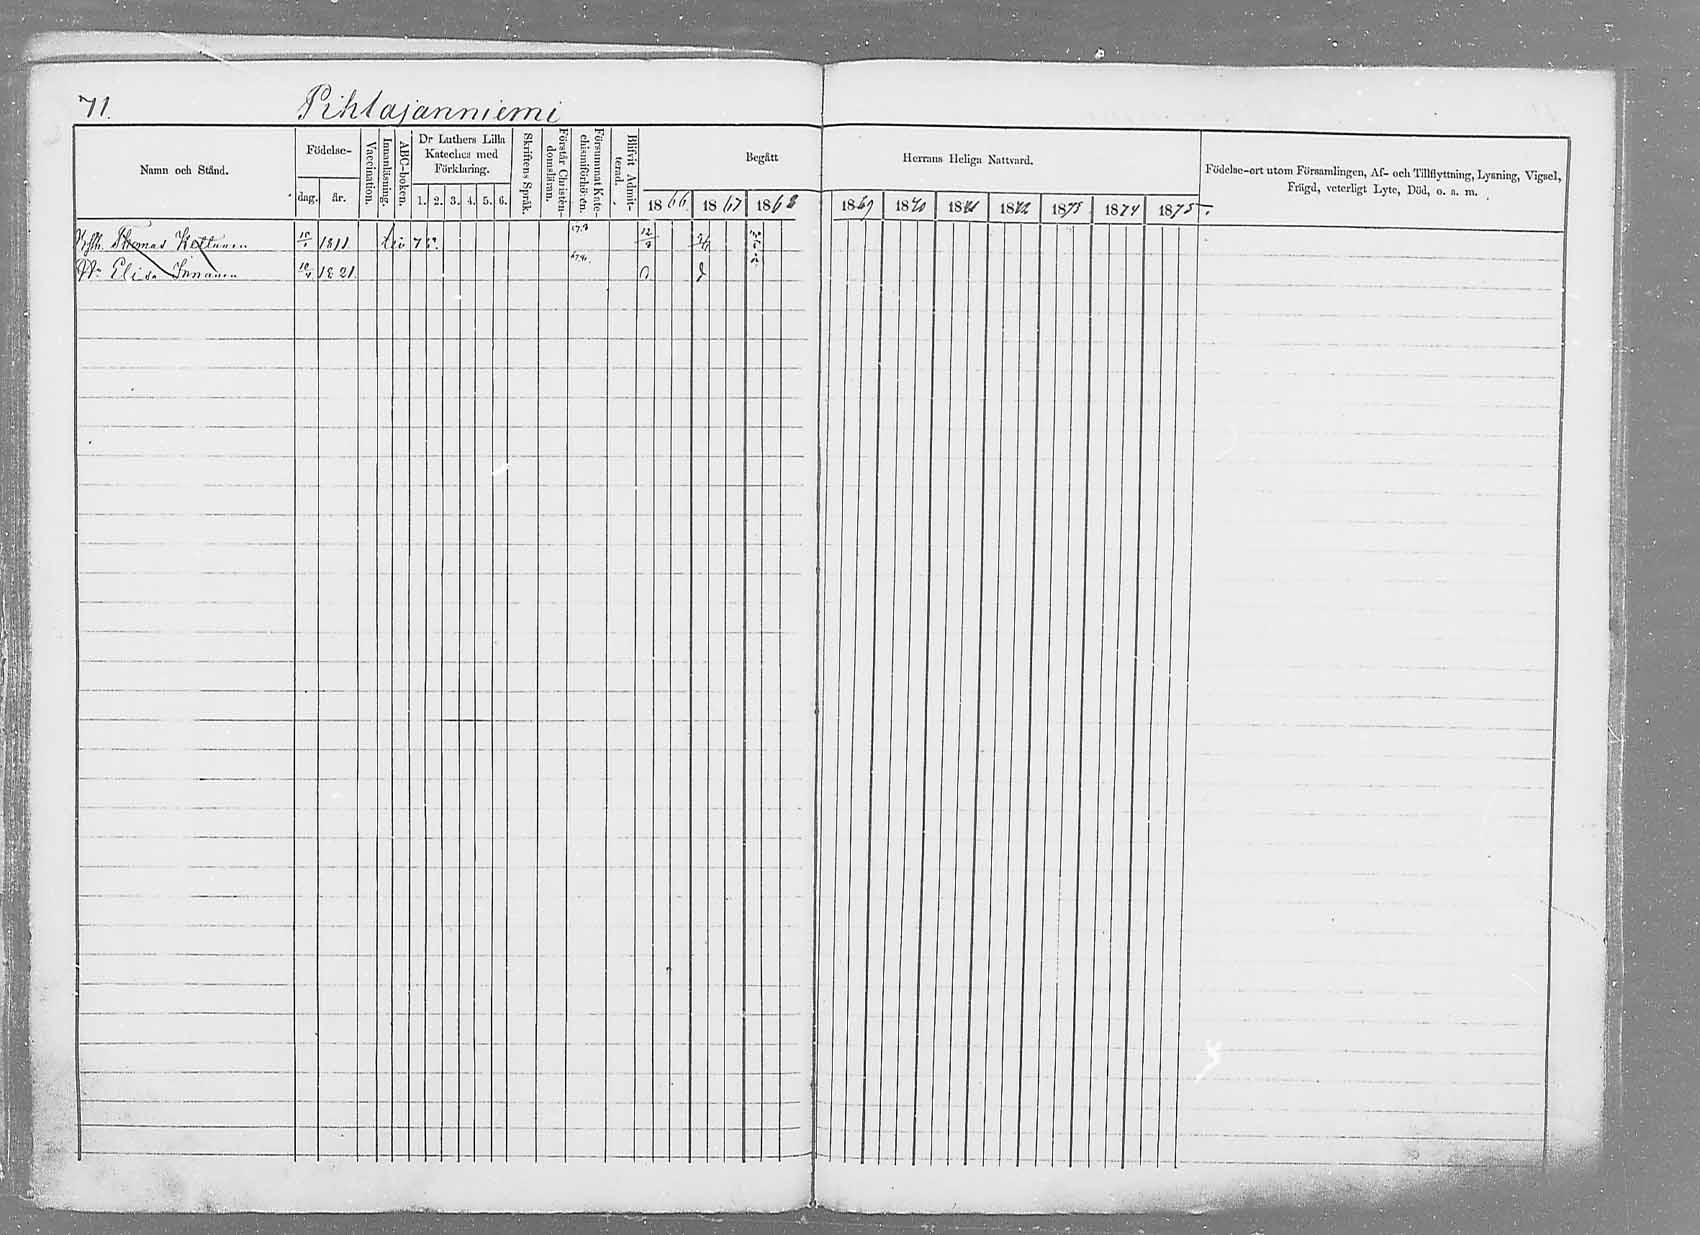 71. Pihlajanniemi
Namn och Stånd.
Födelse-
dag. år.
Vaccination.
Innanläsning.
ABC-boken.
Dr Luthers Lilla
Kateches med
Förklaring.
1. 2. 3. 4. 5. 6.
Skriftens Språk.
Förstår Christen-
domsläran.
Försummat Kate-
chismiförhören.
Blifvit Admit-
terad.
Begått Herrans Heliga Nattvard.
1866 1867 1868 1869 1870 1871 1872 1873 1874 1875
Födelse-ort utom Församlingen, Af- och Tillflyttning, Lysning, Vigsel,
Frägd, veterligt Lyte, Död, o. s. m.
Thomas Kettunen 1811
Elisa Innanen 1821